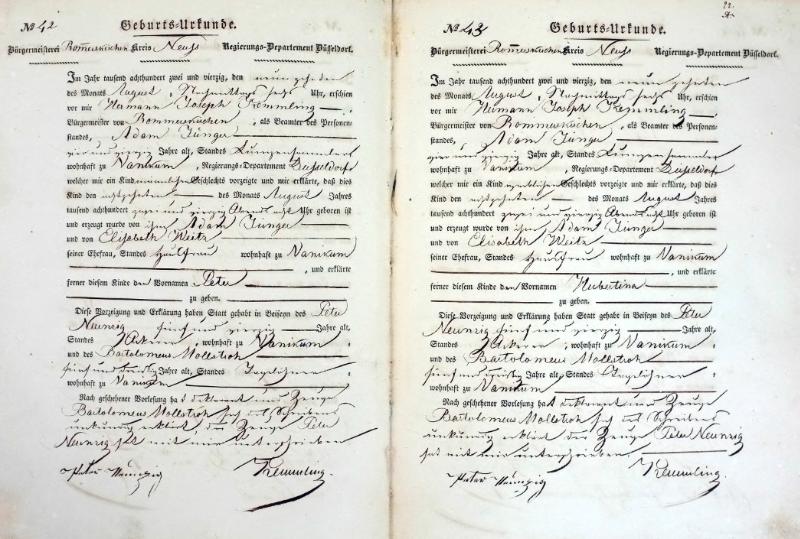 No 42
Geburts-Urkunde.
Bürgermeisterei Rommerskirchen Kreis Neuss Regierungs-Departement Düsseldorf.
Im Jahr tausend achthundert zwei und vierzig, den neunzehnten
des Monats August, Nachmittags sechs Uhr, erschien
vor mir Hermann Joseph Kemmling
Bürgermeister von Rommerskirchen, als Beamter des Personen-
standes, Adam Junger
vier und vierzig Jahre alt, Standes Lumpensammler
wohnhaft zu Vanikum, Regierungs-Departement Düsseldorf
welcher mir ein Kind männlichen Geschlechts vorzeigte und mir erklärte, daß dies
Kind den achtzehnten des Monats August Jahres
tausend achthundert zwei und vierzig Abends acht Uhr geboren ist
und erzeugt wurde von ihm, Adam Junger
und von Elisabeth Weitz
seiner Ehefrau, Standes Hausfrau wohnhaft zu Vanikum
, und erklärte
ferner diesem Kinde den Vornamen Peter
zu geben.
Diese Vorzeigung und Erklärung haben Statt gehabt in Beiseyn des Peter
Neunzig fünf und vierzig Jahre alt,
Standes Ackerer, wohnhaft zu Vanikum
und des Bartolomeus Mollstroh
fünf und Jahre alt, Standes Tagelöhner
wohnhaft zu Vanikum
Nach geschehener Vorlesung hat deklarant und Zeuge
Bartolomeus Mollstroh sich als Schreibens
unkündig erklärt der Zeuge Peter
Neunzig hat mit mir unterschrieben
Peter Neunzig Kemmling.
22.
No 43
Geburts-Urkunde.
Bürgermeisterei Rommerskirchen Kreis Neuss Regierungs-Departement Düsseldorf.
Im Jahr tausend achthundert zwei und vierzig, den neunzehnten
des Monats August, Nachmittags sechs Uhr, erschien
vor mir Hermann Joseph Kemmling
Bürgermeister von Rommerskirchen, als Beamter des Personen-
standes, Adam Junger
vier und vierzig Jahre alt, Standes Lumpensammler
wohnhaft zu Vanikum, Regierungs-Departement Düsseldorf
welcher mir ein Kind weiblichen Geschlechts vorzeigte und mir erklärte, daß dies
Kind den achtzehnten des Monats August Jahres
tausend achthundert zwei und vierzig Abends acht Uhr geboren ist
und erzeugt wurde von ihm, Adam Junger
und von Elisabeth Weitz
seiner Ehefrau, Standes Hausfrau wohnhaft zu Vanikum
, und erklärte
ferner diesem Kinde den Vornamen Hubertina
zu geben.
Diese Vorzeigung und Erklärung haben Statt gehabt in Beiseyn des Peter
Neunzig fünf und vierzig Jahre alt,
Standes Ackerer, wohnhaft zu Vanikum
und des Bartolomeus Mollstroh
fünf und Jahre alt, Standes Tagelöhner
wohnhaft zu Vanikum
Nach geschehener Vorlesung hat deklarant und Zeuge
Bartolomeus Mollstroh sich als Schreibens
unkündig erklärt der Zeuge Peter Neunzig
hat mit mir unterschrieben
Peter Neunzig Kemmling.